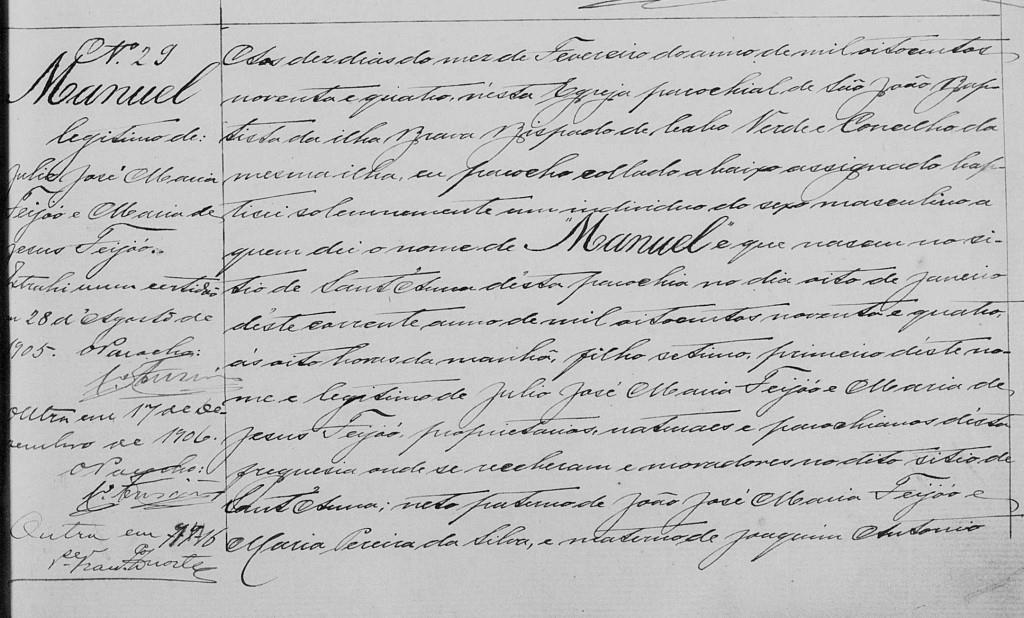 Nº 29
Manuel
legitimo de:
Julio José Maria
Feijóo e Maria de
Jesus Feijóo.
Extrahi uma certidão
em 28 d'Agosto de
1905. O Parocho:
Outra em 17 de De-
zembro de 1906.
O Parocho:
Outra em
Aos dez dias do mez de Fevereiro do anno de mil oitocentos
noventa e quatro, n'esta Egreja parochial de São João Bap-
tista da ilha Brava Bispado de Cabo Verde e Concelho da
mesma ilha, eu parocho collado abaixo assignado bap-
tisei solemnemente um individuo do sexo masculino a
quem dei o nome de "Manuel" e que nasceu no si-
tio de Sant'Anna d'ésta parochia no dia oito de Janeiro
d'éste corrente anno de mil oitocentos noventa e quatro,
ás oito horas da manhã, filho setimo, primeiro d'éste no-
me e legitimo de Julio José Maria Feijóo e Maria de
Jesus Feijóo, proprietarios, naturaes e parochianos d'ésta
freguesia onde se receberam e moradores no dito sitio de
Sant'Anna; neto paterno de João José Maria Feijóo e
Maria Pereira da Silva, e materno de Joaquim Antonio